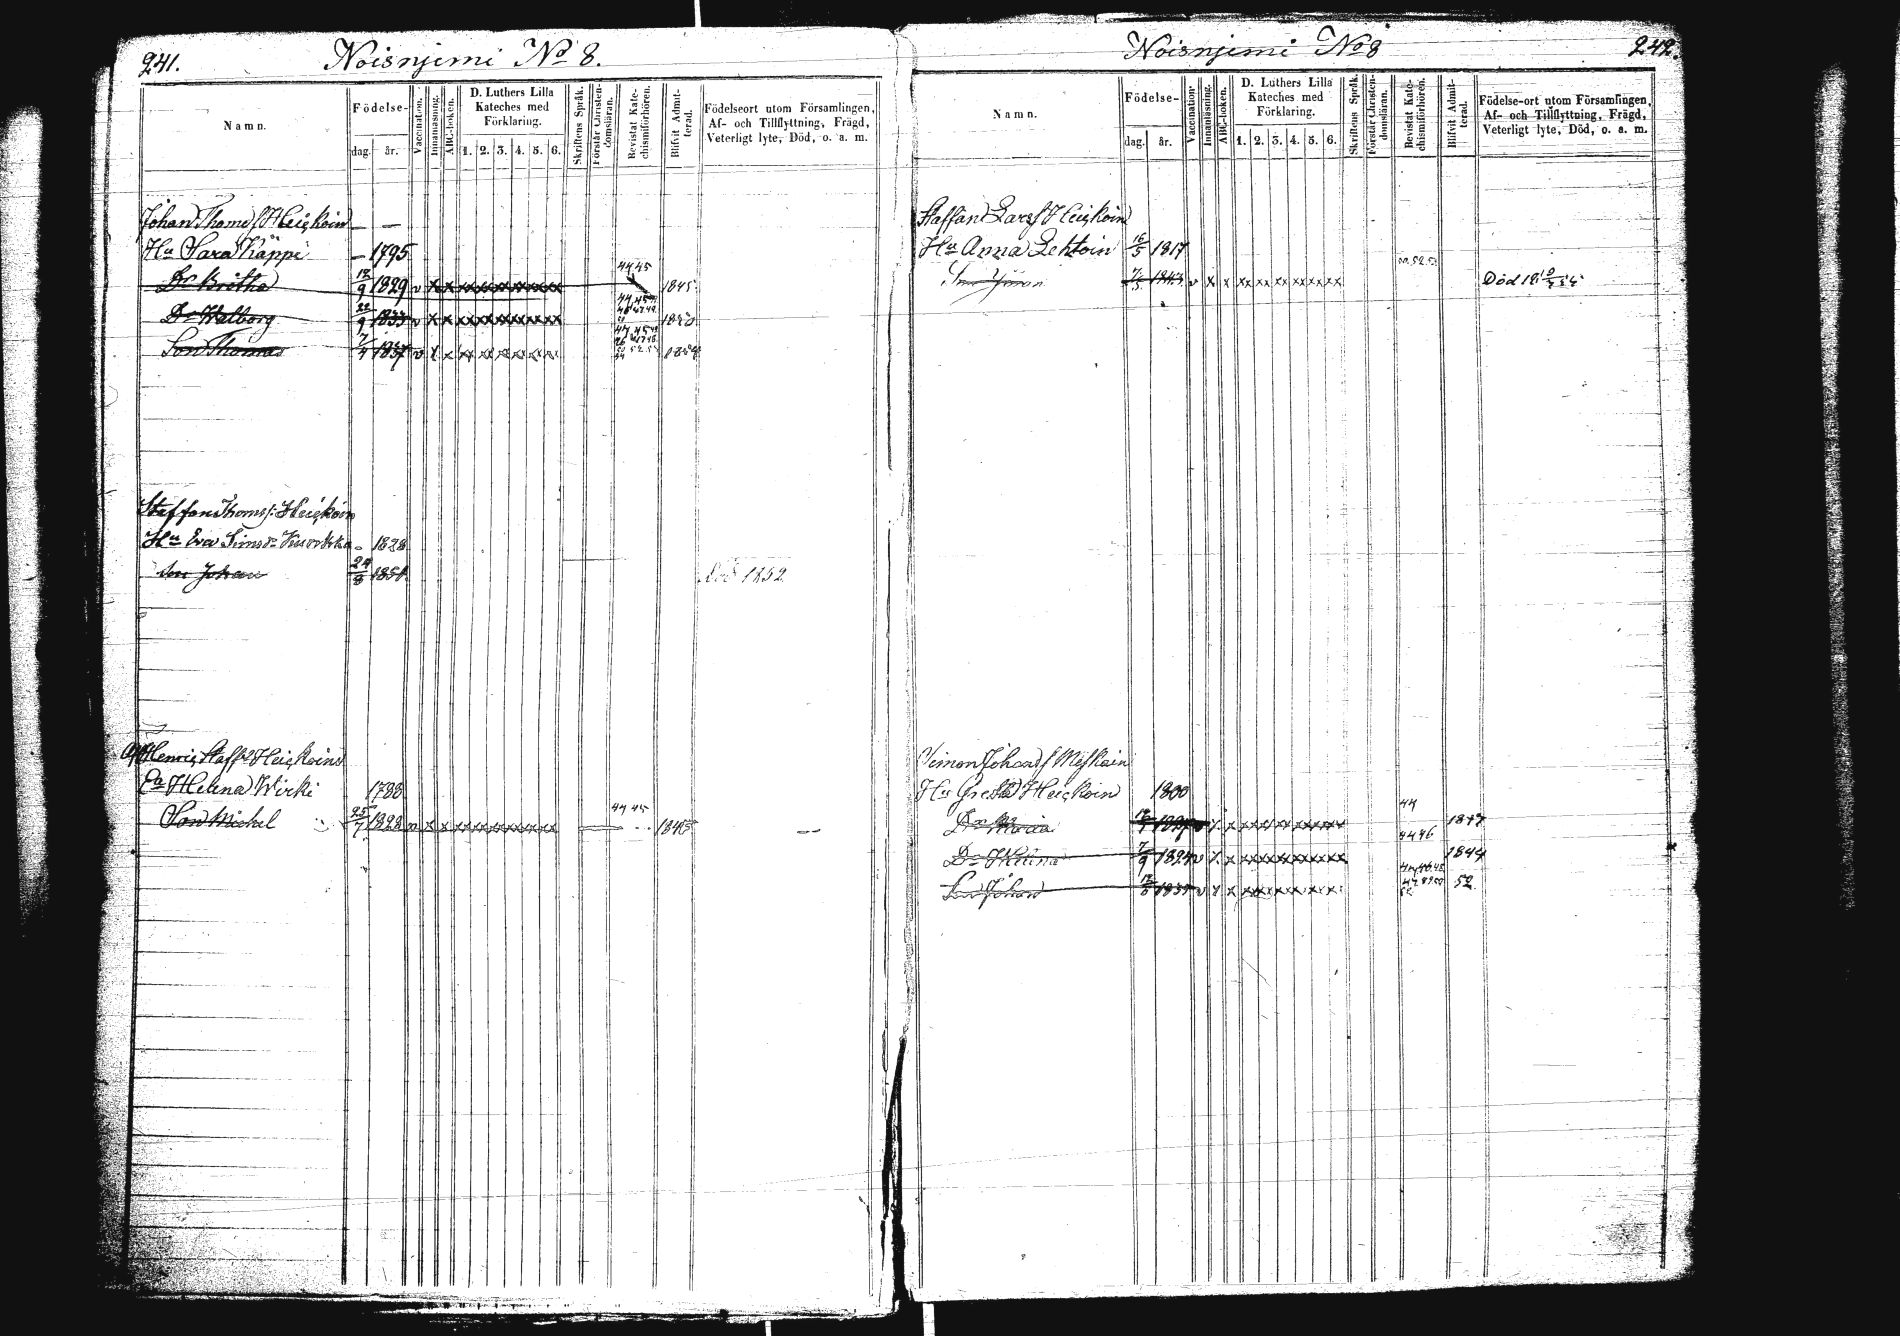 241.
Noisnjemi No 8.
Namn.
Födelse-
dag. år.
Vaccination.
Innanläsning.
ABC-boken.
D. Luthers Lilla
Kateches med
Förklaring.
1. 2. 3. 4. 5. 6.
Skriftens Språk.
Förstår Christen-
domsläran.
Bevistat Kate-
chismiförhören.
Blifvit Admit-
terad.
Födelseort utom Församlingen,
Af- och Tillflyttning, Frägd,
Veterligt lyte, Död, o. a. m.
Johan Thoms Heiskoin – –
Hu Sara Käppi – 1795
Dr Britha 12/9 1829 v x x xx xx xx xx xx xx 44 45 1845
Dr Walborg 22/9 1833 v x x xx xx xx xx xx xx 1850
Son Thomas 7/4 1837 v x x xx xx xx xx xx xx 1854
Staffan Thomss: Heiskoin
Hu Eva Simsdr - 1828
Son Johan 24/8 1851 Död 1852
Henric Staffs Heiskoins
Ea Helena Wirki 1788
Son Michel 25/7 1828 v x x xx xx xx xx xx xx 44 45 1845
242.
Noisnjemi No 8
Namn.
Födelse-
dag. år.
Vaccination.
Innanläsning.
ABC-boken.
D. Luthers Lilla
Kateches med
Förklaring.
1. 2. 3. 4. 5. 6.
Skriftens Språk.
Förstår Christen-
domsläran.
Bevistat Kate-
chismiförhören.
Blifvit Admit-
terad.
Födelse-ort utom Församlingen,
Af- och Tillflyttning, Frägd,
Veterligt lyte, Död, o. a. m.
Staffan Lars Heiskoin
Hu Anna Lehtoin 16/5 1817
Son Jöran 1843 v x x xx xx xx xx xx xx Död
Simon Johans Meskain
Hu Greta Heiskoin 1800
Dr Maria 1827 v x x xx xx xx xx xx xx 44 1847
Dr Helena 7/9 1824 v x x xx xx xx xx xx xx 44 46 1844
Son Johan 12/6 1835 v x x xx xx xx xx xx xx 52